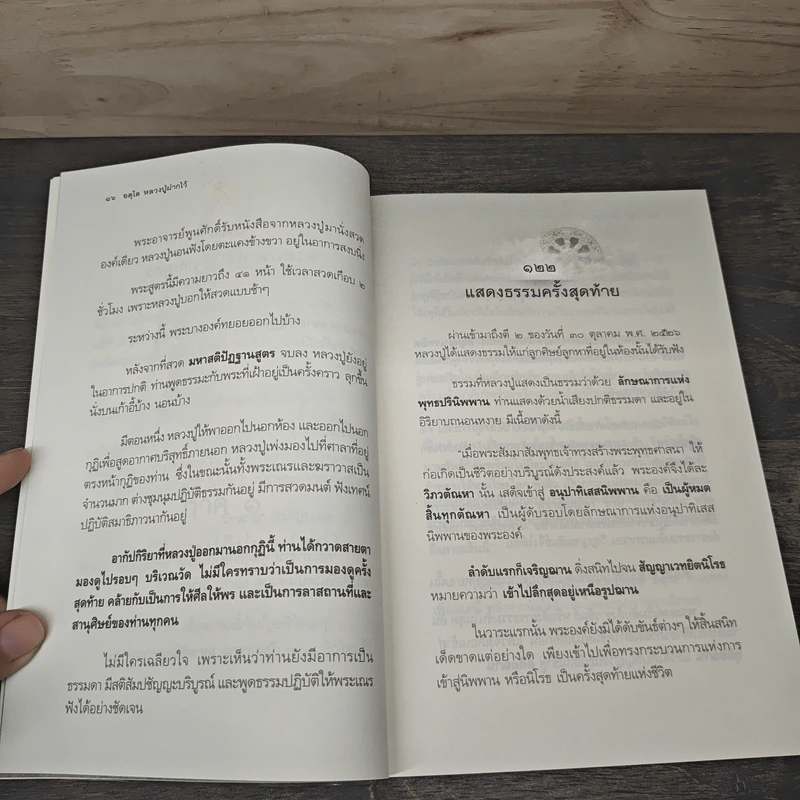 ๑๖ อตุโล หลวงปู่ฝากไว้
พระอาจารย์พูนศักดิ์รับหนังสือจากหลวงปู่มานั่งสวด
องค์เดียว หลวงปู่นอนฟังโดยตะแคงข้างขวา อยู่ในอาการสงบนิ่ง
พระสูตรนี้มีความยาวถึง ๔๑ หน้า ใช้เวลาสวดเกือบ ๒
ชั่วโมง เพราะหลวงปู่บอกให้สวดแบบช้าๆ
ระหว่างนี้ พระบางองค์ทยอยออกไปบ้าง
หลังจากที่สวด มหาสติปัฏฐานสูตร จบลง หลวงปู่ยังอยู่
ในอาการปกติ ท่านพูดธรรมะกับพระที่เฝ้าอยู่เป็นครั้งคราว ลุกขึ้น
นั่งบนเก้าอี้บ้าง นอนบ้าง
มีตอนหนึ่ง หลวงปู่ให้พาออกไปนอกห้อง และออกไปนอก
กุฏิเพื่อสูดอากาศบริสุทธิ์ภายนอก หลวงปู่เพ่งมองไปที่ศาลาที่อยู่
ตรงหน้ากุฏิของท่าน ซึ่งในขณะนั้นทั้งพระเณรและฆราวาสเป็น
จำนวนมาก ต่างชุมนุมปฏิบัติธรรมกันอยู่ มีการสวดมนต์ ฟังเทศน์
ปฏิบัติสมาธิภาวนากันอยู่
อากัปกิริยาที่หลวงปู่ออกมานอกกุฏินี้ ท่านได้กวาดสายตา
มองดูไปรอบๆ บริเวณวัด ไม่มีใครทราบว่าเป็นการมองดูครั้ง
สุดท้าย คล้ายกับเป็นการให้ศีลให้พร และเป็นการลาสถานที่และ
สานุศิษย์ของท่านทุกคน
ไม่มีใครเฉลียวใจ เพราะเห็นว่าท่านยังมีอาการเป็น
ธรรมดา มีสติสัมปชัญญะบริบูรณ์ และพูดธรรมปฏิบัติให้พระเณร
ฟังได้อย่างชัดเจน
๑๒๒
แสดงธรรมครั้งสุดท้าย
ผ่านเข้ามาถึงตี ๒ ของวันที่ ๓๐ ตุลาคม พ.ศ. ๒๕๒๖
หลวงปู่ได้แสดงธรรมให้แก่ลูกศิษย์ลูกหาที่อยู่ในห้องนั้นได้รับฟัง
ธรรมที่หลวงปู่แสดงเป็นธรรมว่าด้วย ลักษณาการแห่ง
พุทธปรินิพพาน ท่านแสดงด้วยน้ำเสียงปกติธรรมดา และอยู่ใน
อิริยาบถนอนหงาย มีเนื้อหาดังนี้
“เมื่อพระสัมมาสัมพุทธเจ้าทรงสร้างพระพุทธศาสนา ให้
ก่อเกิดเป็นชีวิตอย่างบริบูรณ์ดังประสงค์แล้ว พระองค์จึงได้ละ
วิภวตัณหา นั้น เสด็จเข้าสู่ อนุปาทิเสสนิพพาน คือ เป็นผู้หมด
สิ้นทุกตัณหา เป็นผู้ดับรอบโดยลักษณาการแห่งอนุปาทิเสส
นิพพานของพระองค์
ลำดับแรกก็เจริญฌาน ดิ่งสนิทไปจน สัญญาเวทยิตนิโรธ
หมายความว่า เข้าไปลึกสุดอยู่เหนือรูปฌาน
ในวาระแรกนั้น พระองค์ยังมิได้ดับขันธ์ต่างๆ ให้สิ้นสนิท
เด็ดขาดแต่อย่างใด เพียงเข้าไปเพื่อทรงกระบวนการแห่งการ
เข้าสู่นิพพาน หรือนิโรธ เป็นครั้งสุดท้ายแห่งชีวิต